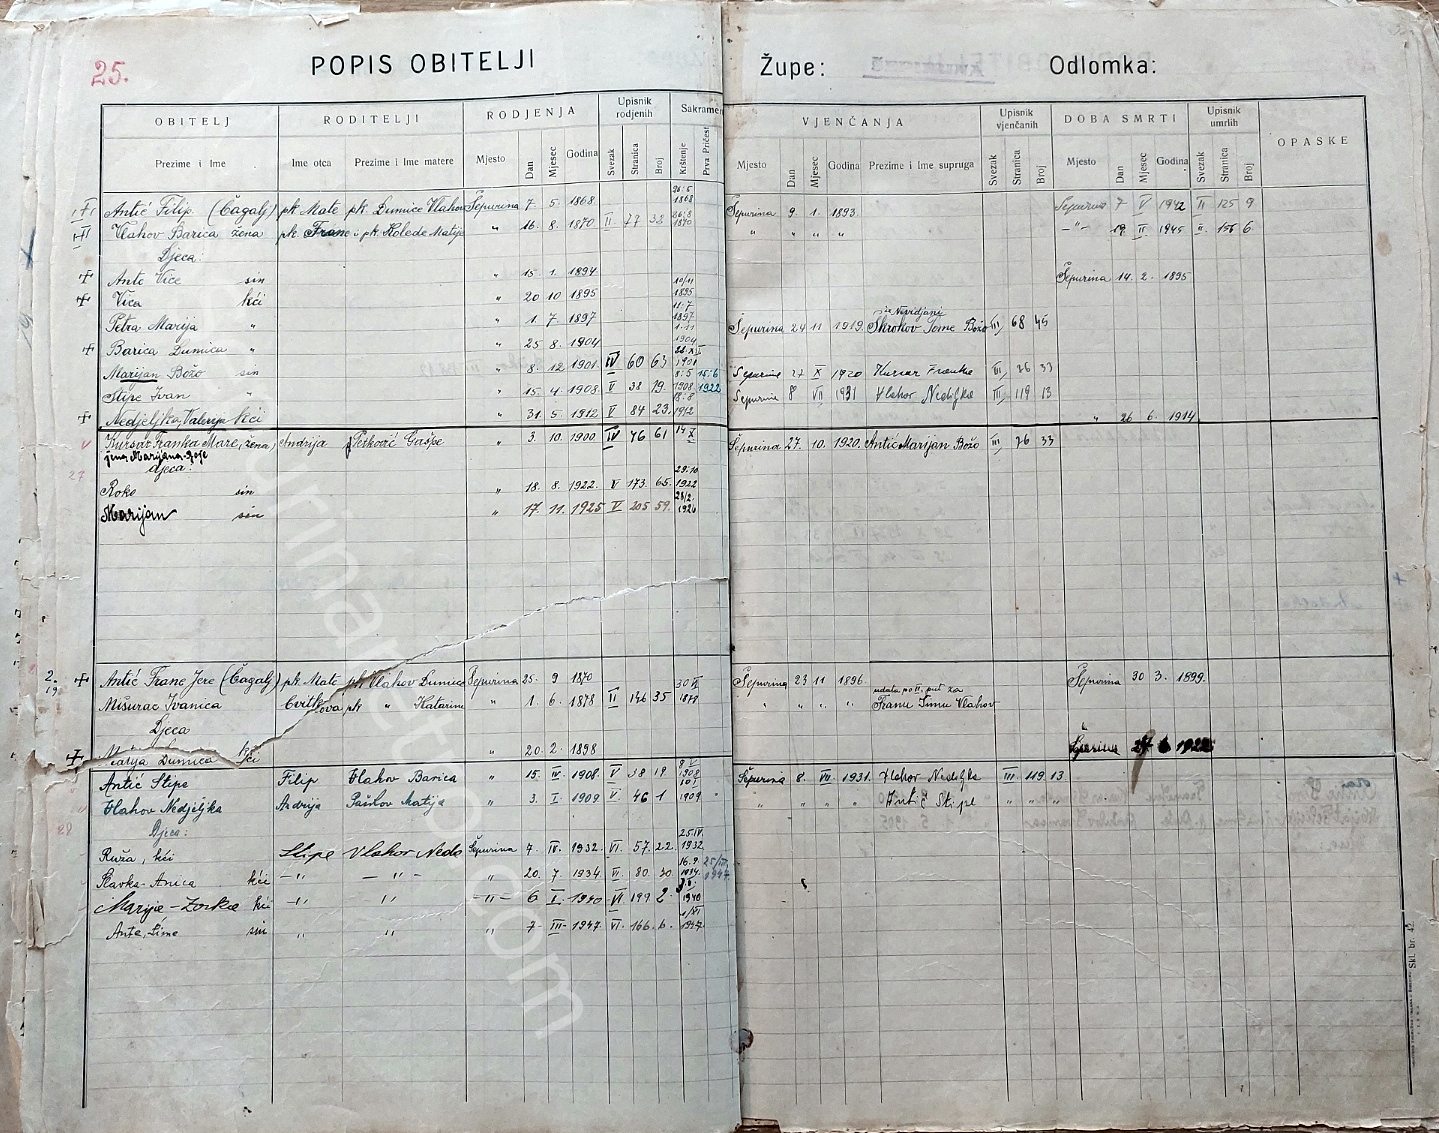 25.
POPIS OBITELJI
Župe:
Odlomka:
OBITELJ RODITELJI RODJENJA Upisnik rodjenih Sakramen VJENČANJA Upisnik vjenčanih DOBA SMRTI Upisnik umrlih OPASKE
Prezime i Ime Ime otca Prezime i Ime matere Mjesto Dan Mjesec Godina Svezak Stranica Broj Krštenje Prva Pričest Mjesto Dan Mjesec Godina Prezime i Ime supruga Svezak Stranica Broj Mjesto Dan Mjesec Godina Svezak Stranica Broj
Antić Filip (Čagalj) pk. Mate pk. Dumice Vlahov Šepurina 7 5 1868 26.5 1868 Šepurina 9 1. 1893. Šepurina 7 V 1942 II 125 9
Vlahov Barica žena pk. Frane i pk. Kolede Matije " 16. 8. 1870 II 77 38 26.8 1870 " " " " -"- 19 II 1945 II. 156 6
Djeca:
Ante Vice sin " 15 1. 1894. Šepurina 14. 2. 1895
Vica kći " 20 10 1895 10/11 1895
Petra Marija " " 1. 7 1897 11.7 1897 Šepurina 24 11 1919. Skrokov Tome Božo III 68 45
Barica Dumica " " 25 8. 1904 1904
Marijan Božo sin " 8. 12. 1901. IV 60 63 1901 Šepurine 27 X 1920 Kursar Franka III 76 33
Stipe Ivan " " 15. 4. 1908. V 38 19. 1908 15.6 1922 Šepurine 8 VII 1931 Vlahov Nediljka III 119 13
Nedjeljka, Valerija kći " 31. 5. 1912 V 84 23. 1912 " 26 6. 1914.
Kursar Franka Mare, žena, Andrija Pešković Gašpe " 3. 10. 1900. IV 46 61 14 X Šepurina 27. 10. 1920. Antić Marijan Božo III 76 33
djeca:
27
Roko sin " 18. 8. 1922. V 173. 65. 29.10 1922
Marijan sin " 17. 11. 1925 V 205 59. 28/2. 1926
2. 19. Antić Frane Jere (Čagalj) pk. Mate pk. Vlahov Dumica Šepurina 25. 9 1870 Šepurina 23 11 1896. Šepurina 30 3. 1899.
Misurac Ivanica Cvitkova pk. " Katarine " 1. 6. 1878 II 146 35 30 VI 1878 " " " " udata po II. put za Franu Šimu Vlahov
Djeca
Marija Dumica kći " 20. 2. 1898 Šepurina 27 6 1922
Antić Stipe Filip Vlahov Barica " 15. IV. 1908. V 38 19 8 V 1908 Šepurina 8. VII. 1931. Vlahov Nediljka III. 119. 13
Vlahov Nedjeljka Andrija Pašilov Matija " 3. I. 1909 V 46 1 10 I 1909 " " " " Antić Stipe " " "
28 Djeca:
Ruža, kći Stipe Vlahov Neda Šepurina 7. IV. 1932. VI. 57. 22. 25.IV. 1932
Slavka-Anica kći -"- -"- " 20. 7. 1934. VI. 80. 30 16.9. 1934. 25/III. 1947
Marija-Zorka kći -"- " -"- 6 I. 1940 VI 199 2. 1940
Ante, Šime sin " " " 7- III- 1947. VI. 166. 6. 1/VI 1947.
Skl. br. 42.
sepurinaretro.com